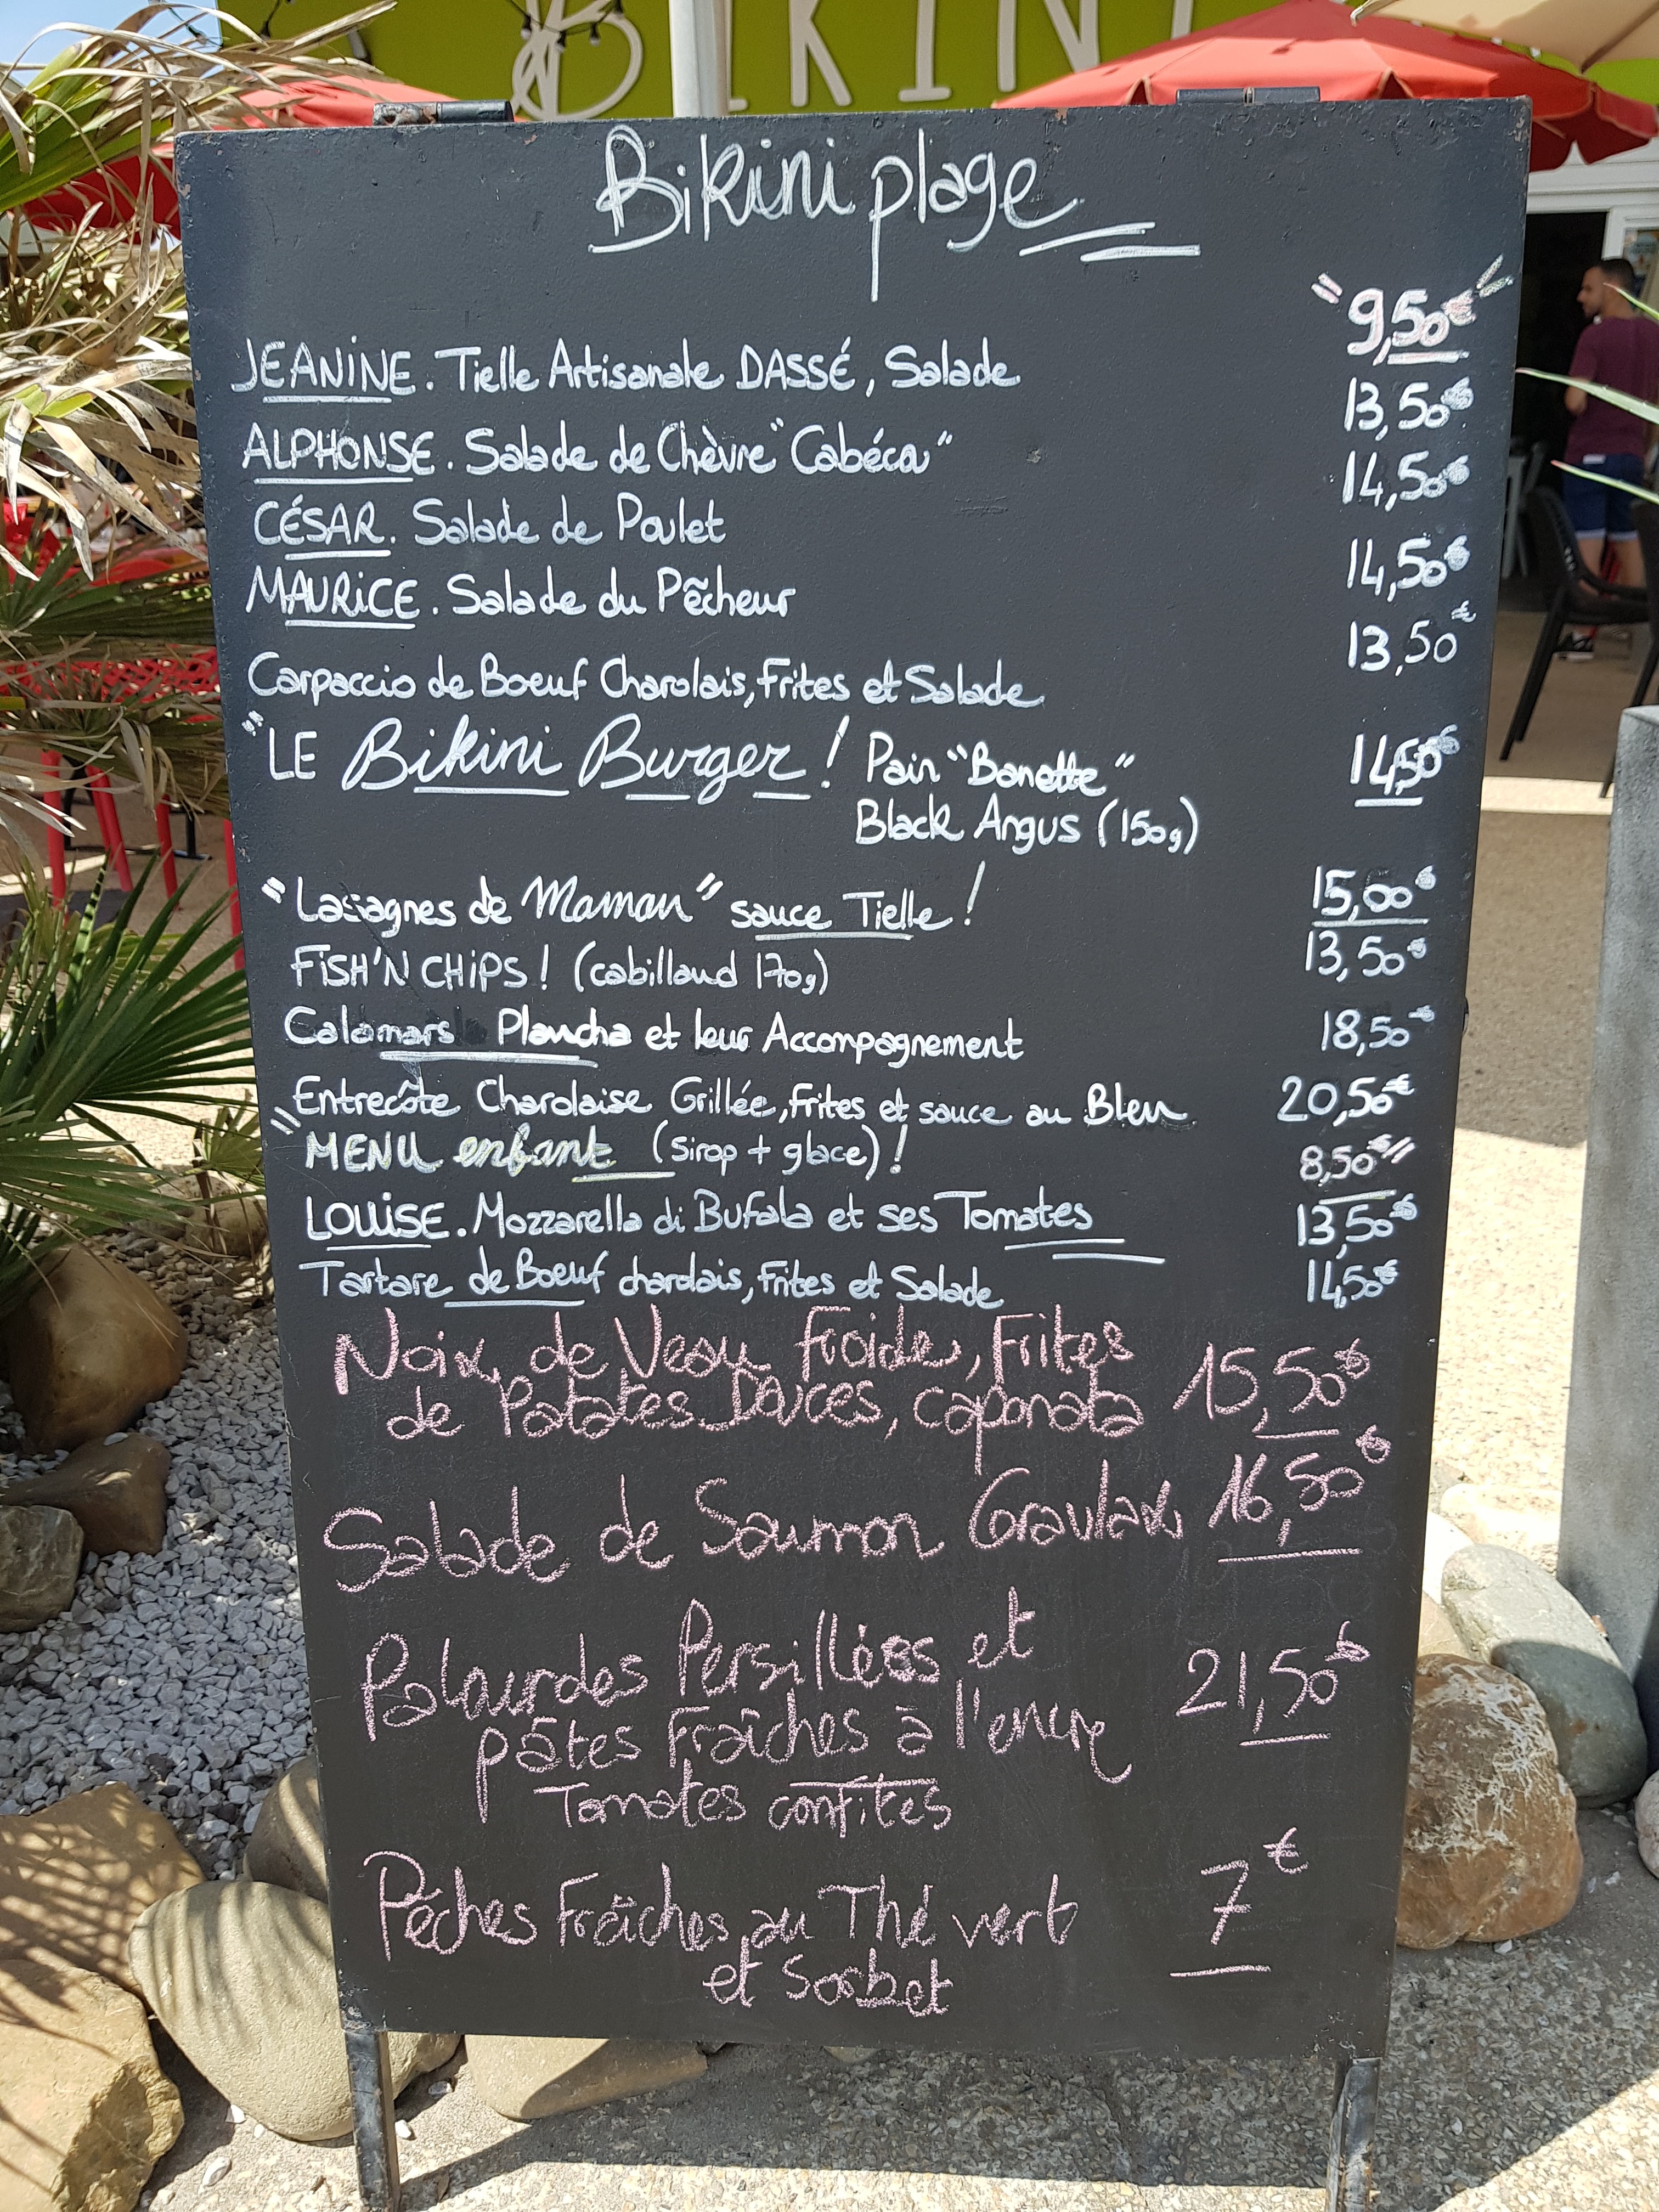 BIKINI
Bikini plage
JEANINE. Tielle Artisanale DASSÉ, Salade "9,50€"
ALPHONSE. Salade de Chèvre "Cabécou" 13,50€
CÉSAR. Salade de Poulet 14,50€
MAURICE. Salade du Pêcheur 14,50€
Carpaccio de Boeuf Charolais, Frites et Salade 13,50€
"LE Bikini Burger! Pain "Banette" 14,50€
Black Angus (150g)
"Lasagnes de Maman" sauce Tielle! 15,00€
FISH'N CHIPS! (cabillaud 170g) 13,50€
Calamars Plancha et leur Accompagnement 18,50€
Entrecôte Charolaise Grillée, frites et sauce au Bleu 20,50€
"MENU enfant (sirop + glace)! 8,50€"
LOUISE. Mozzarella di Bufala et ses Tomates 13,50€
Tartare de Boeuf charolais, Frites et Salade 14,50€
Noix de Veau froide, Frites 15,50€
de Patates Douces, caponata
Salade de Saumon Gravlax 16,50€
Palourdes Persillées et 21,50€
pâtes Fraîches à l'encre
Tomates confites
Pêches Fraîches au Thé vert 7€
et Sorbet